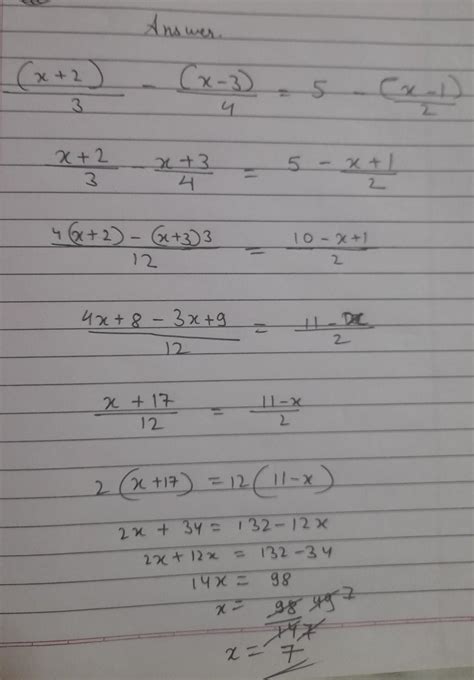 Answer.
(x+2)/3 - (x-3)/4 = 5 - (x-1)/2
x+2/3 - x+3/4 = 5 - x+1/2
4(x+2) - (x+3)3/12 = 10-x+1/2
4x+8-3x+9/12 = 11-x/2
x+17/12 = 11-x/2
2(x+17) = 12(11-x)
2x + 34 = 132-12x
2x+12x = 132-34
14x = 98
x = 98 49 7/14 7
x = 7